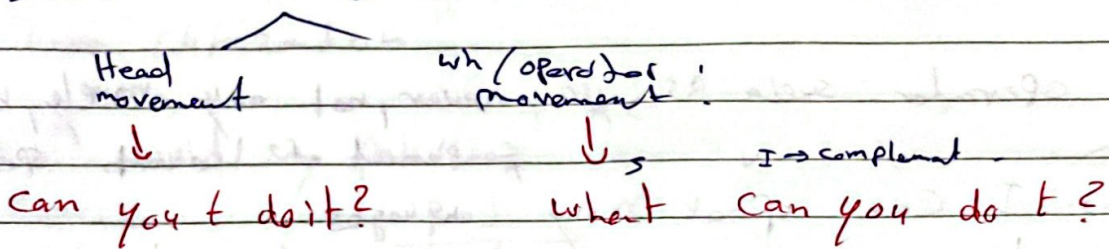 Head
movement
wh / operator
movement :
↓
↓ s I → complemat.
Can you t do it?
what Can you do t ?